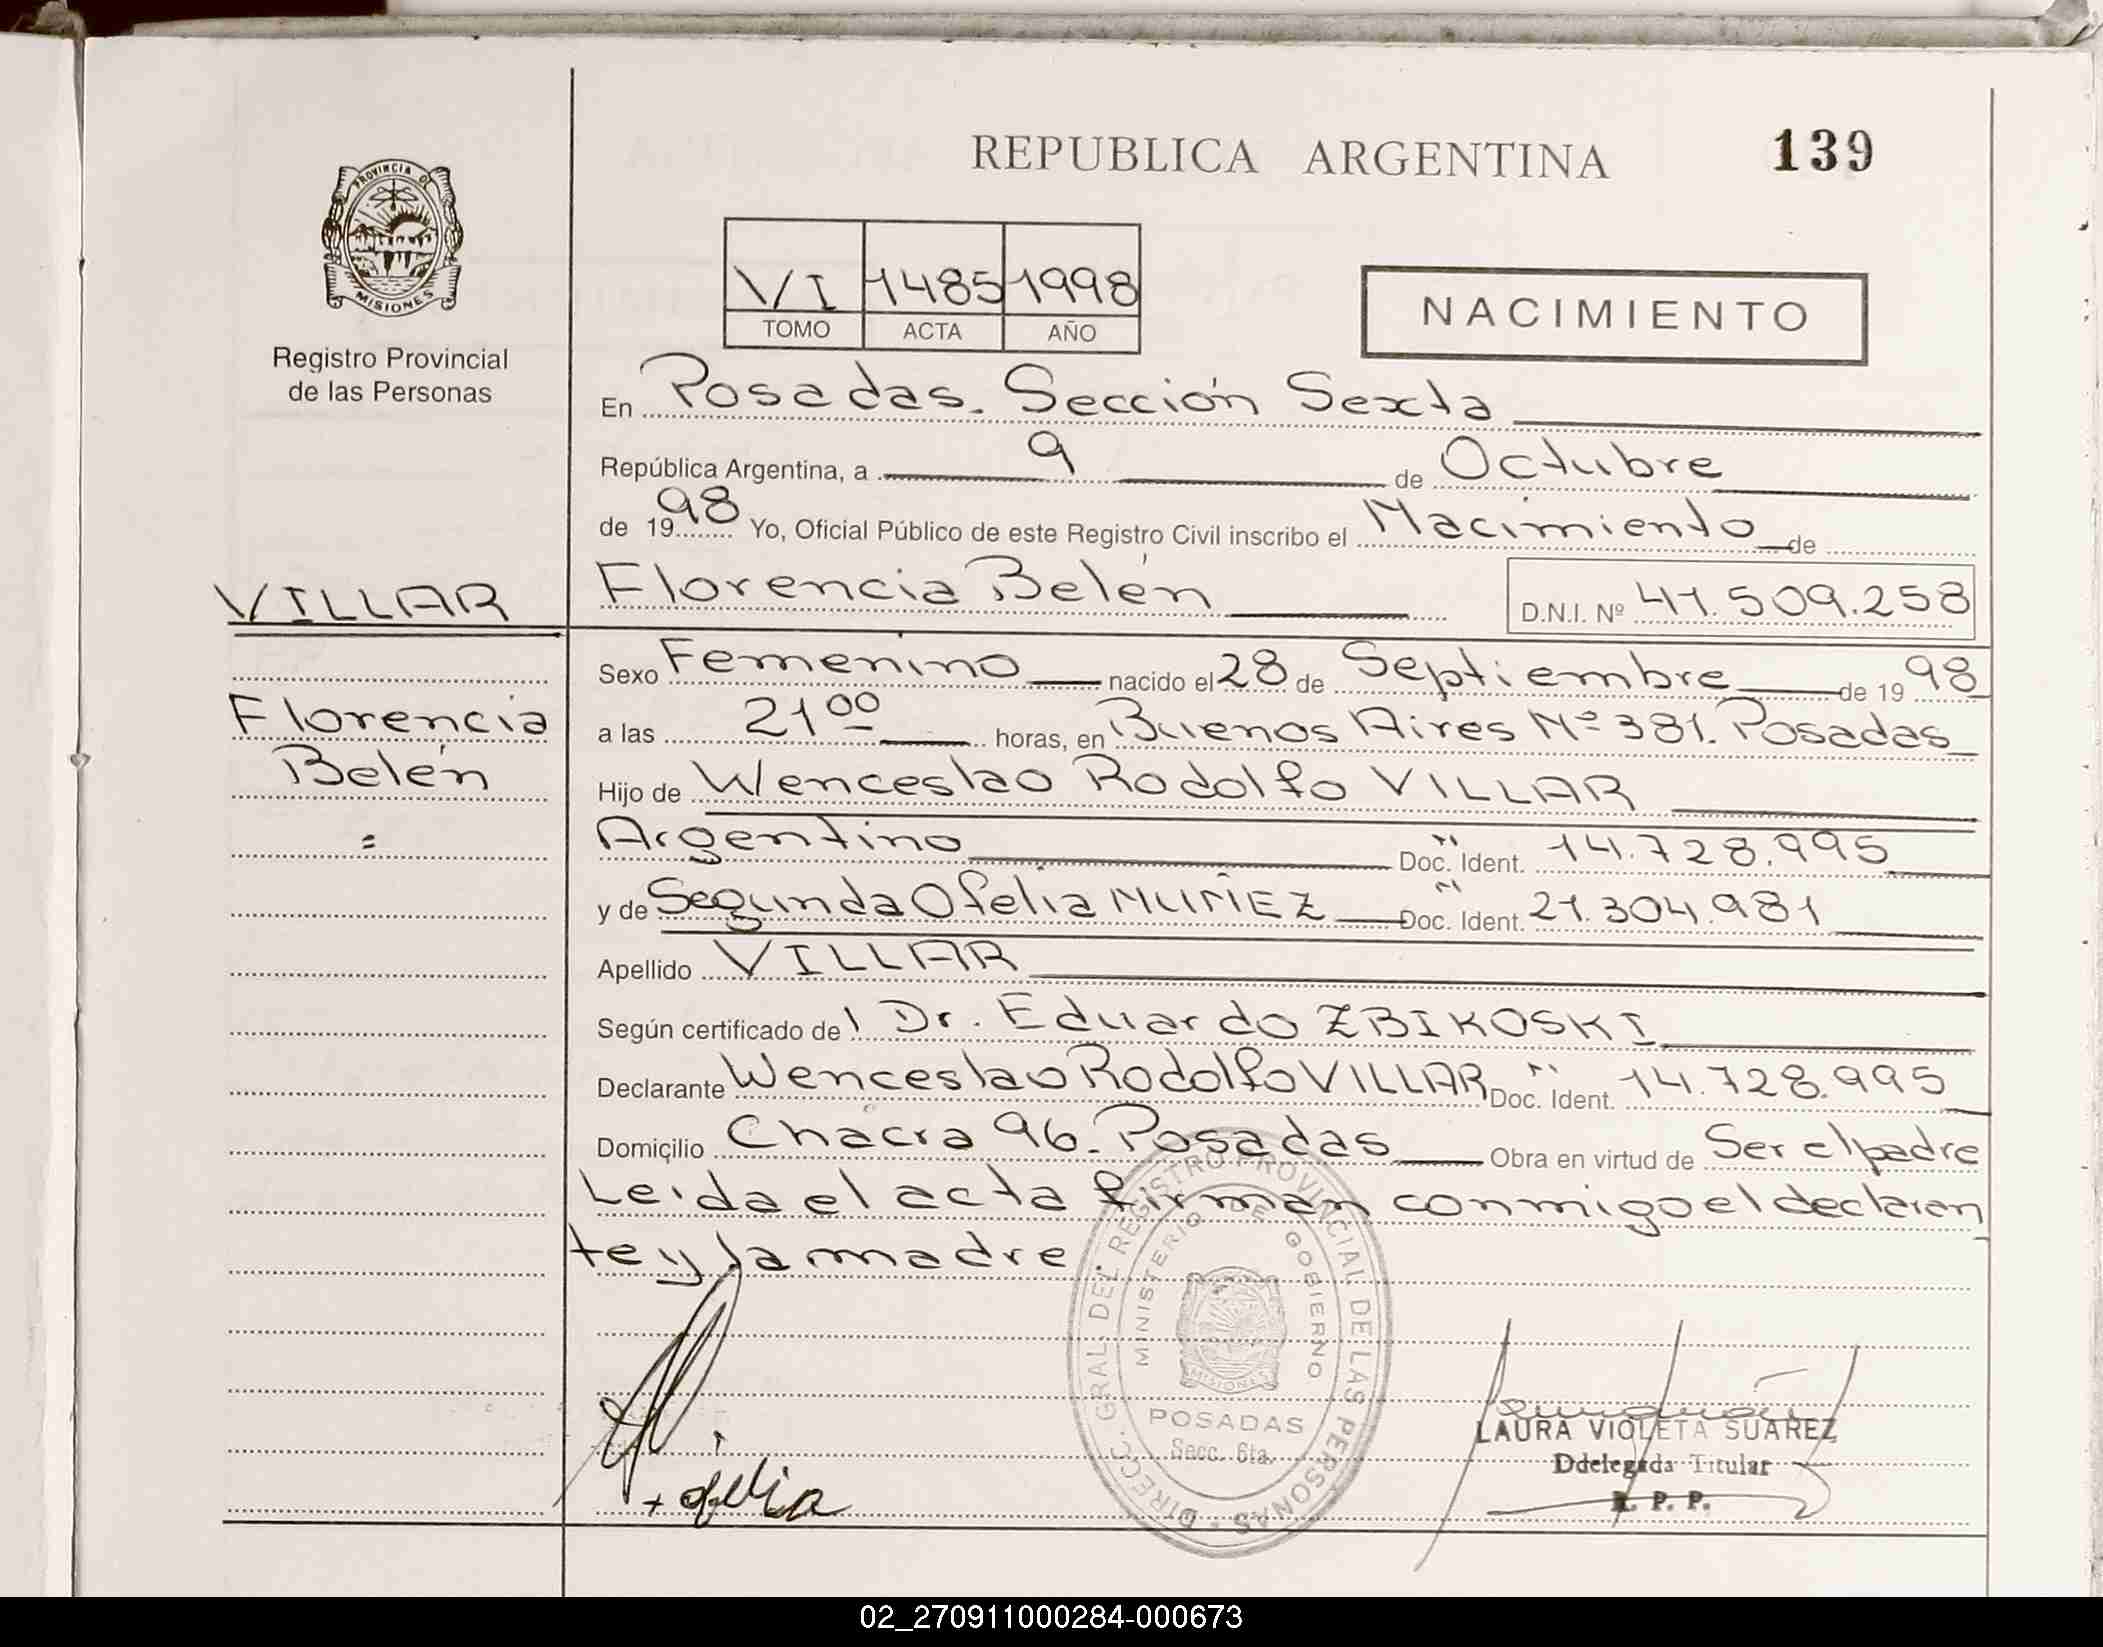 REPUBLICA ARGENTINA 139
PROVINCIA DE
MISIONES
Registro Provincial
de las Personas
VI 1485 1998
TOMO ACTA AÑO
NACIMIENTO
En Posadas. Sección Sexta
República Argentina, a 9 de Octubre
de 1998 Yo, Oficial Público de este Registro Civil inscribo el Nacimiento de
VILLAR
Florencia Belén D.N.I. Nº 41.509.258
Sexo Femenino nacido el 28 de Septiembre de 1998
Florencia
Belén
=
a las 21 00 horas, en Buenos Aires Nº 381. Posadas
Hijo de Wenceslao Rodolfo VILLAR
Argentino Doc. Ident. 14.728.995
y de Segunda Ofelia MUÑEZ Doc. Ident. 21.304.981
Apellido VILLAR
Según certificado del Dr. Eduardo ZBIKOSKI
Declarante Wenceslao Rodolfo VILLAR Doc. Ident. 14.728.995
Domicilio Chacra 96. Posadas Obra en virtud de Ser el padre
Leida el acta firman conmigo el declaran
te y la madre
DIRECC. GRAL. DEL REGISTRO PROVINCIAL DE LAS PERSONAS -
MINISTERIO DE GOBIERNO
MISIONES
POSADAS
Secc. 6ta.
LAURA VIOLETA SUAREZ
Ddelegada Titular
R. P. P.
02_270911000284-000673